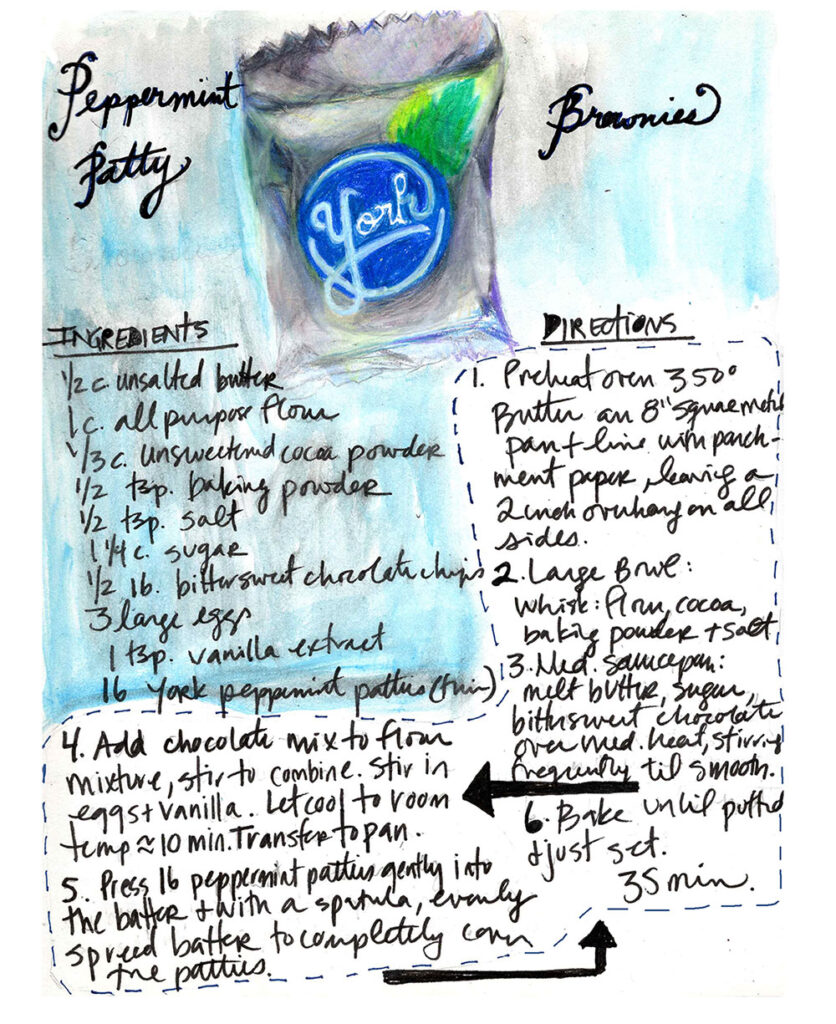 Peppermint
Patty
Brownies
York
INGREDIENTS
1/2 c. unsalted butter
1 c. all purpose flour
1/3 c. unsweetened cocoa powder
1/2 tsp. baking powder
1/2 tsp. salt
1 1/4 c. sugar
1/2 lb. bittersweet chocolate chips
3 large eggs
1 tsp. vanilla extract
16 York peppermint patties (thin)
DIRECTIONS
1. Preheat oven 350°
Butter an 8" square metal
pan + line with parch-
ment paper, leaving a
2 inch overhang on all
sides.
2. Large Bowl:
whisk: flour, cocoa,
baking powder + salt
3. Med. saucepan:
melt butter, sugar,
bittersweet chocolate
over med. heat, stirring
frequently til smooth.
4. Add chocolate mix to flour
mixture, stir to combine. Stir in
eggs + vanilla. Let cool to room
temp ≈ 10 min. Transfer to pan.
5. Press 16 peppermint patties gently into
the batter + with a spatula, evenly
spread batter to completely cover
the patties.
6. Bake until puffed
+ just set.
35 min.